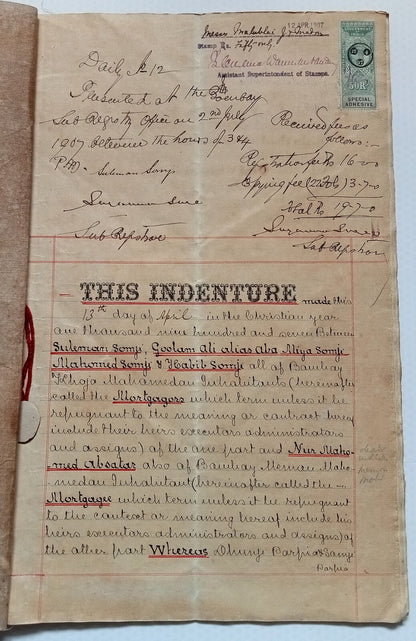 12 APR 1907
Stamp Rs. Fifty only
Assistant Superintendent of Stamps.
50 R
SPECIAL
ADHESIVE
Daily No 12
Presented at the Bombay
Sub Registry Office on 2nd July
1907 between the hours of 3 & 4
P.M. Suleman Somji
Sub Registrar
Received fees as
follows:-
Registration fee Rs 16-0-0
Copying fee 3-7-0
Total Rs 19-7-0
Sub Registrar
THIS INDENTURE made this
13th day of April in the Christian year
one thousand nine hundred and seven Between
Suleman Somji, Goolam Ali alias Aba Miya Somji
Mahomed Somji & Habib Somji all of Bombay
Khoja Mahomedan Inhabitants (hereinafter
called the Mortgagors which term unless it be
repugnant to the meaning or context hereof
include their heirs executors administrators
and assigns) of the one part and Nur Maho-
med Absatar also of Bombay Memon Maho-
medan Inhabitant (hereinafter called the
Mortgagee which term unless it be repugnant
to the context or meaning hereof include his
heirs executors administrators and assigns) of
the other part Whereas Dhunji Parpia & Somji
Parpia